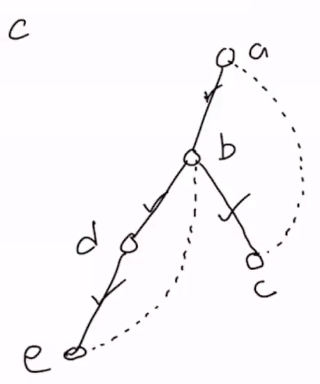 c
a
b
d
c
e